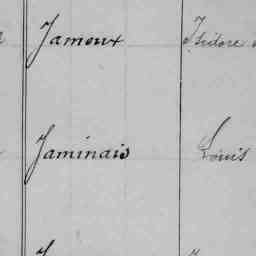 Jamoux Isidore
Jaminais Louis